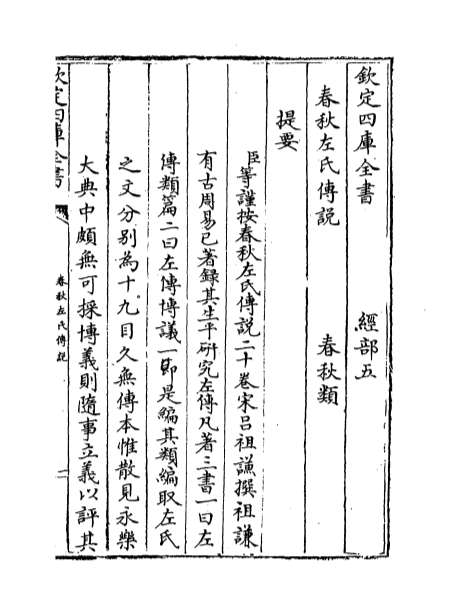 欽定四庫全書　經部五
春秋左氏傳說　春秋類
提要
臣等謹按春秋左氏傳說二十卷宋呂祖謙撰祖謙
有古周易已著録其生平研究左傳凡著三書一曰左
傳類篇二曰左傳博議一即是編其類編取左氏
之文分别為十九目久無傳本惟散見永樂
大典中頗無可採博義則隨事立義以評其
欽定四庫全書
春秋左氏傳說
一